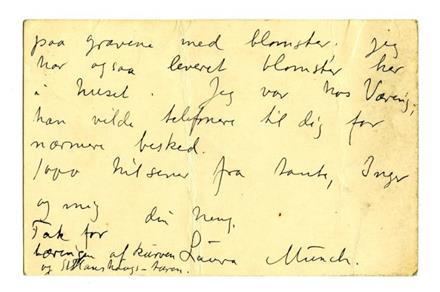 paa gravene med blomster. jeg
har ogsaa leveret blomster her
i huset. Jeg var hos Væring,
han vilde telefonere til dig for
nærmere besked.
1000 hilsener fra tante, Inger
og mig din heng.
Tak for
bæringen af kurven Laura Munch.
og St Hanshaugs-turen.